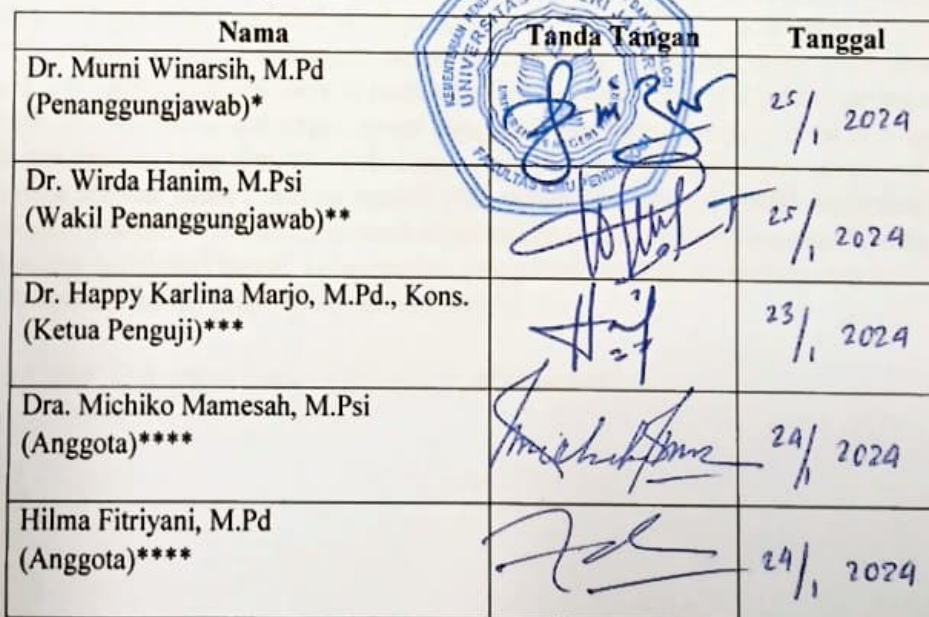 Nama Tanda Tangan Tanggal
Dr. Murni Winarsih, M.Pd
(Penanggungjawab)*
25/1 2024
Dr. Wirda Hanim, M.Psi
(Wakil Penanggungjawab)**
25/1 2024
Dr. Happy Karlina Marjo, M.Pd., Kons.
(Ketua Penguji)***
23/1 2024
Dra. Michiko Mamesah, M.Psi
(Anggota)****
24/1 2024
Hilma Fitriyani, M.Pd
(Anggota)****
24/1 2024
FAKULTAS ILMU PENDIDIKAN